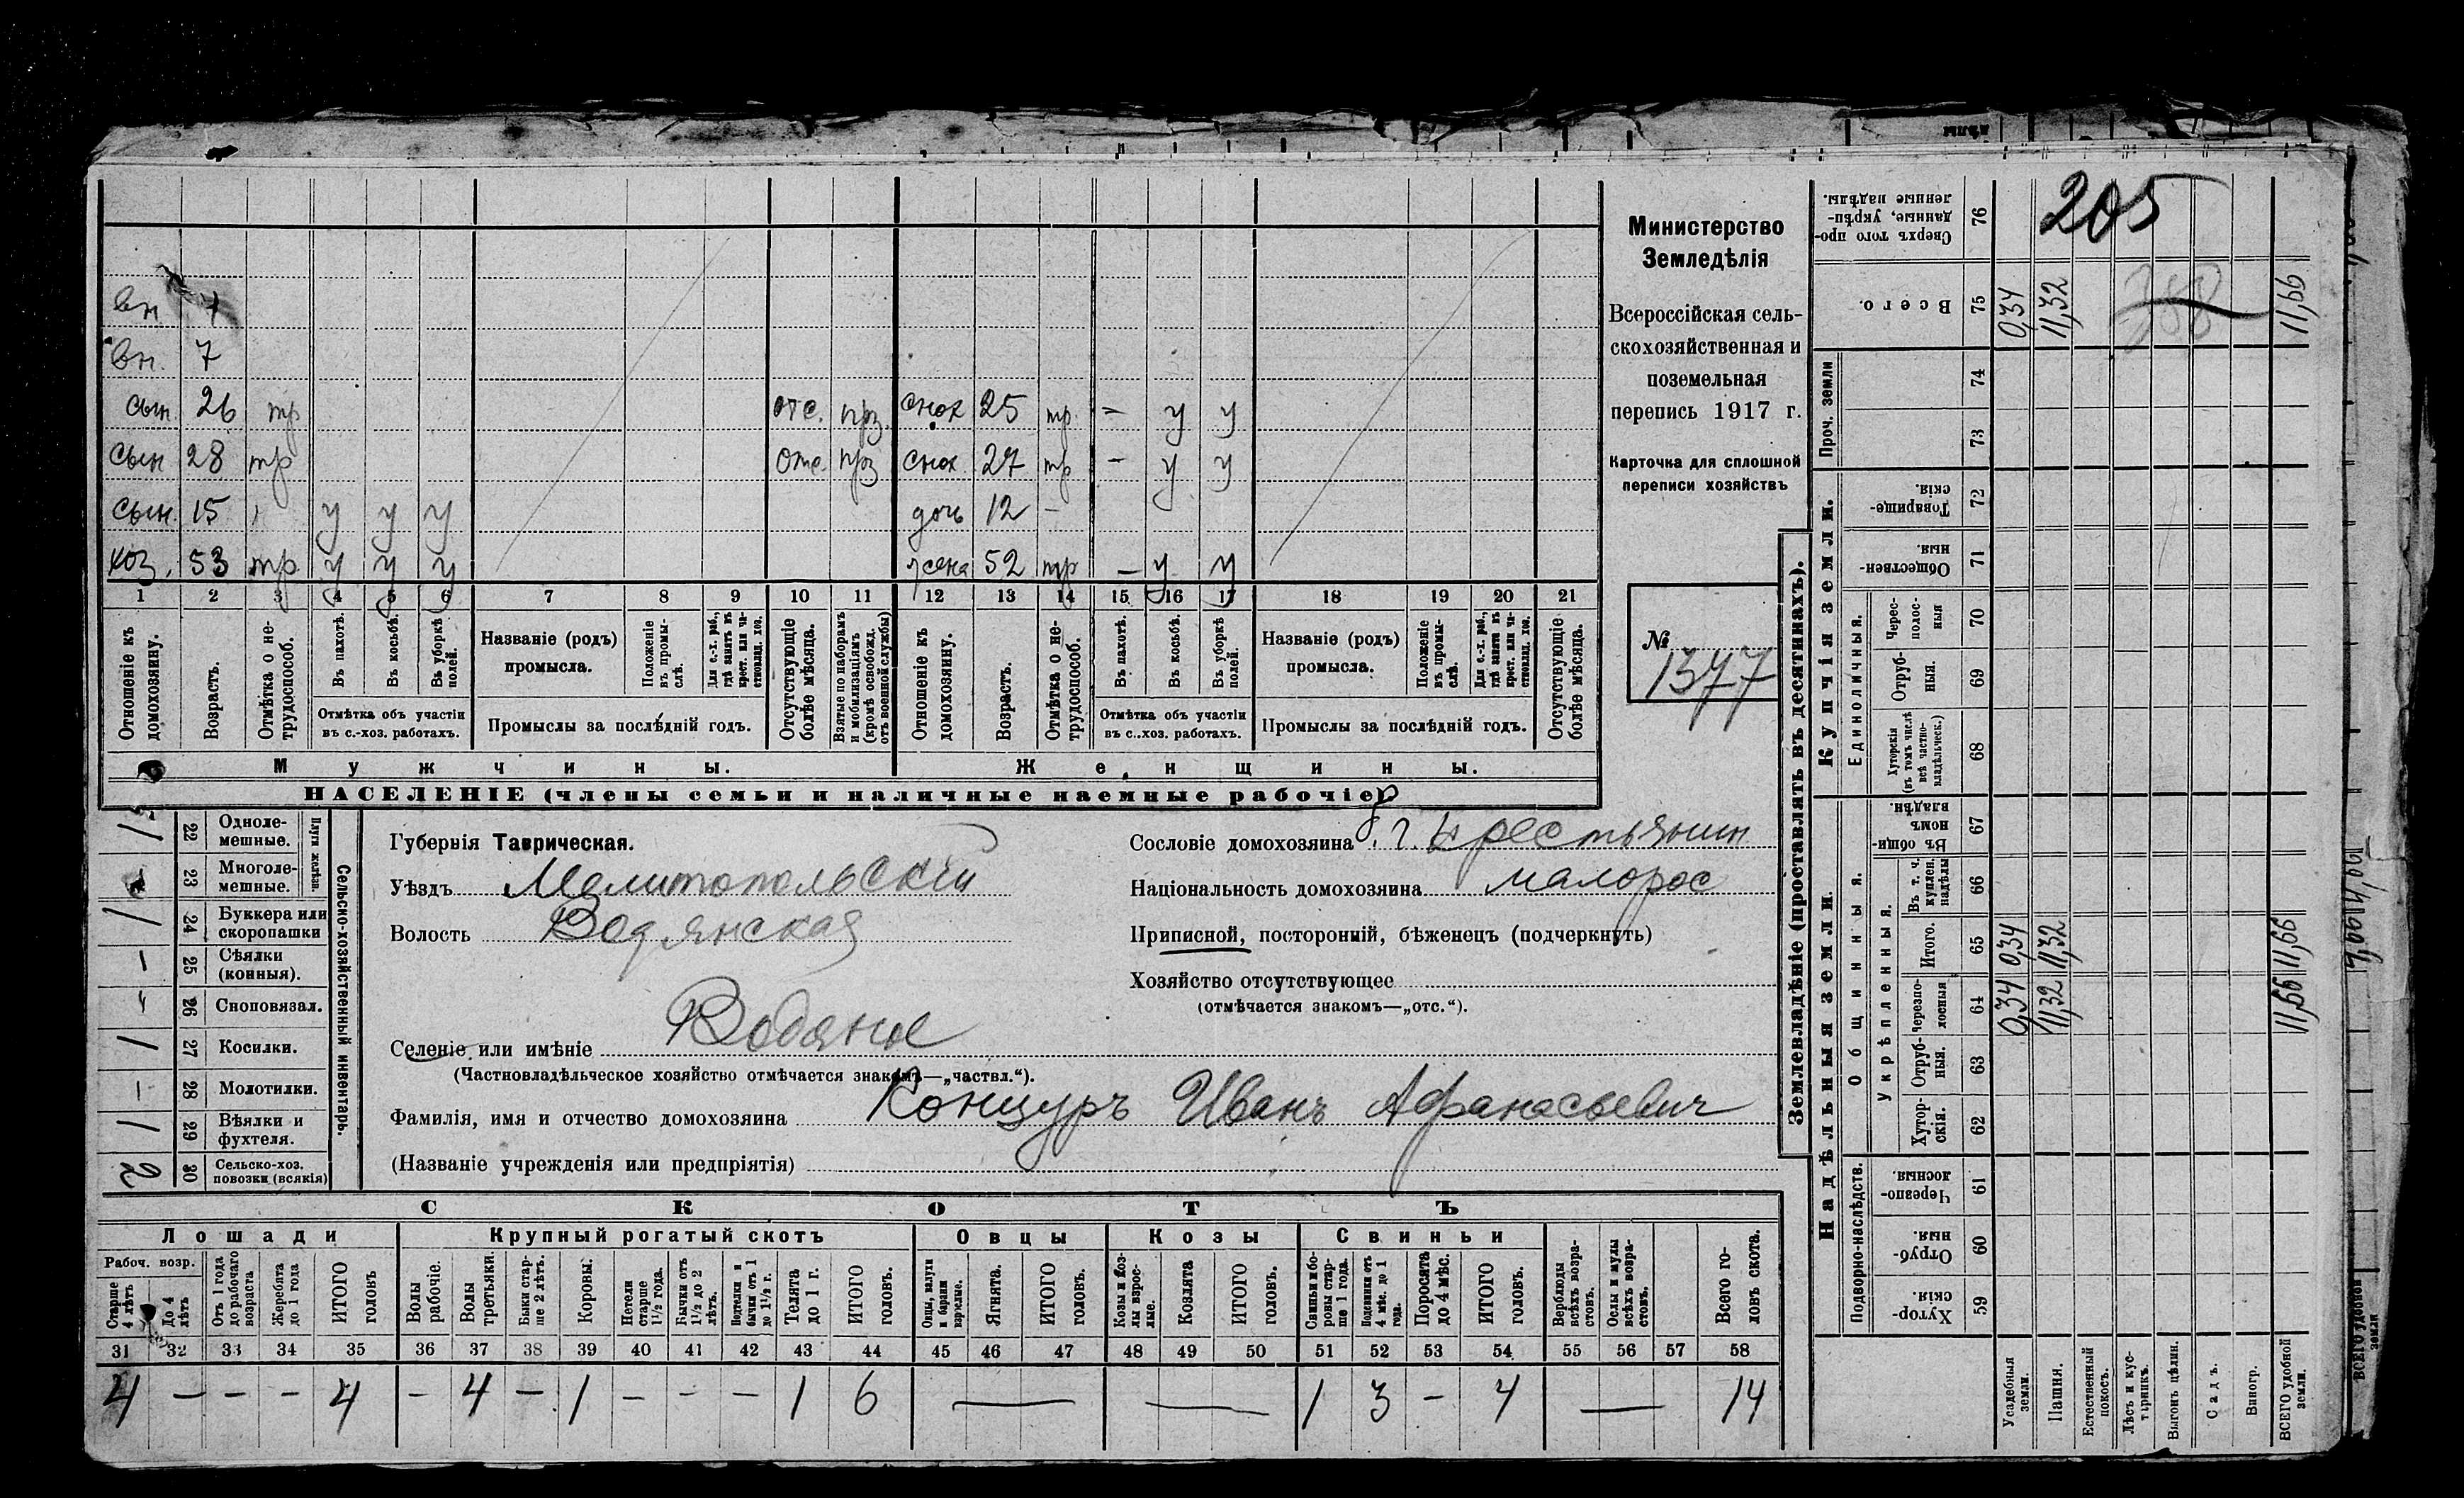 205
вн 7
вн. 7
сын. 26 тр отс. прз. снох 25 тр. – у у
сын 28 тр отс. прз снох. 27 тр – у у
сын. 15 у у у дочь 12 –
хоз. 53 тр у у у жена 52 тр – у у
1 2 3 4 5 6 7 8 9 10 11 12 13 14 15 16 17 18 19 20 21
Отношеніе къ домохозяину.
Возрастъ.
Отмѣтка о нетрудоспособ.
Въ пахотѣ.
Въ косьбѣ.
Въ уборкѣ полей.
Отмѣтка объ участіи
въ с.-хоз. работахъ.
Названіе (родъ)
промысла.
Положеніе въ промыслѣ.
Для с.-х. раб., гдѣ занятъ въ крест. или частновлад. хоз.
Промыслы за послѣдній годъ.
Отсутствующіе болѣе мѣсяца.
Взятые по наборамъ и мобилизаціямъ (кромѣ освобожд. отъ военной службы)
Отношеніе къ домохозяину.
Возрастъ.
Отмѣтка о нетрудоспособ.
Въ пахотѣ.
Въ косьбѣ.
Въ уборкѣ полей.
Отмѣтка объ участіи
въ с..хоз. работахъ.
Названіе (родъ)
промысла.
Положеніе въ промыслѣ.
Для с.-х. раб., гдѣ занята въ крест. или частновлад. хоз.
Промыслы за послѣдній годъ.
Отсутствующіе болѣе мѣсяца.
Мужчины.
Женщины.
НАСЕЛЕНІЕ (члены семьи и наличные наемные рабочіе)
Министерство
Земледѣлія
Всероссійская сель-
скохозяйственная и
поземельная
перепись 1917 г.
Карточка для сплошной
переписи хозяйствъ
№
1377
Сельско-хозяйственный инвентарь.
Плуги желѣзн.
1 22 Однолемешные.
23 Многолемешные.
1 24 Буккера или скоропашки
– 25 Сѣялки (конныя).
26 Сноповязал.
1 27 Косилки.
– 28 Молотилки.
1 29 Вѣялки и фухтеля.
2 30 Сельско-хоз. повозки (всякія)
Губернія Таврическая.
Уѣздъ Мелитопольскій
Волость Водянская
Селеніе или имѣніе Водяное
(Частновладѣльческое хозяйство отмѣчается знакомъ—„частвл.“).
Фамилія, имя и отчество домохозяина Концуръ Иванъ Афанасьевич
(Названіе учрежденія или предпріятія)
Сословіе домохозяина б. г. крестьянин
Національность домохозяина малорос
Приписной, посторонній, бѣженецъ (подчеркнуть)
Хозяйство отсутствующее
(отмѣчается знакомъ—„отс.“).
СКОТЪ
Лошади
Крупный рогатый скотъ
Овцы
Козы
Свиньи
Рабоч. возр.
Старше 4 лѣтъ
До 4 лѣтъ
Отъ 1 года до рабочаго возраста
Жеребята до 1 года
ИТОГО головъ
Волы рабочіе.
Волы третьяки.
Быки старше 2 лѣтъ.
Коровы.
Нетели старше 1½ года.
Бычки отъ 1½ до 2 лѣтъ.
Подтелки и бычки отъ 1 до 1½ г.
Телята до 1 г.
ИТОГО головъ.
Овцы, валухи и бараны взрослые.
Ягнята.
ИТОГО головъ.
Козы и козлы взрослые.
Козлята
ИТОГО головъ.
Свиньи и боровы старше 1 года.
Подсвинки отъ 4 мѣс. до 1 года.
Поросята до 4 мѣс.
ИТОГО головъ.
Верблюды всѣхъ возрастовъ.
Ослы и мулы всѣхъ возрастовъ.
Всего головъ скота.
31 32 33 34 35 36 37 38 39 40 41 42 43 44 45 46 47 48 49 50 51 52 53 54 55 56 57 58
4 – – – 4 – 4 – 1 – – – 1 6 — — 1 3 – 4 — 14
Землевладѣніе (проставлять въ десятинахъ).
Купчія земли.
Надѣльныя земли.
Проч. земли
Единоличныя.
Общинныя.
Укрѣпленныя.
Подворно-наслѣдств.
76 Сверхъ того проданные, укрѣпленные надѣлы.
75 Всего. 0,34 11,32 11,66
74
73
72 Товарищескія.
71 Общественныя.
70 Черезполосныя
69 Отрубныя.
68 Хуторскія (въ томъ числѣ всѣ частновладѣльческ.)
67 Въ общинномъ владѣн.
66 Въ т. ч. куплен. надѣлы
65 Итого. 0,34 11,32 11,66
64 Черезполосныя 0,34 11,32 11,66
63 Отрубныя.
62 Хуторскія.
61 Черезполосныя
60 Отрубныя.
59 Хуторскія.
Усадебныя земли.
Пашня.
Естественный покосъ.
Лѣсъ и кустарникъ.
Выгонъ цѣлин.
Садъ.
Виногр.
ВСЕГО удобной земли.
ВСЕГО удобной земли